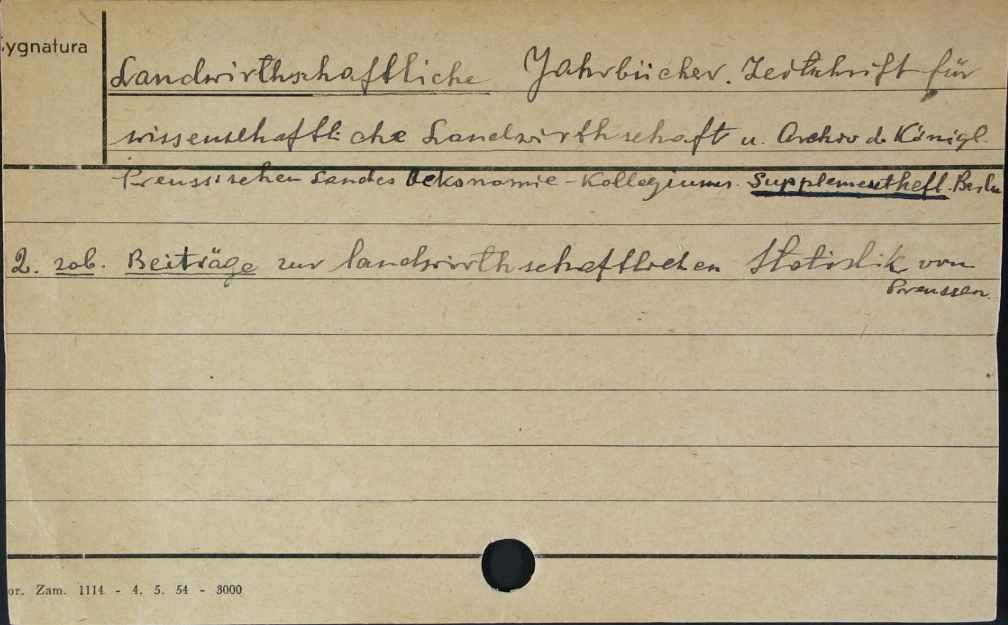 ygnatura
Landwirthschaftliche Jahrbücher. Zeitschrift für
wissenschaftliche Landwirthschaft u. Archiv d. Königl.
Preussischen Landes Oekonomie-Kollegiums. Supplementheft. Berlin
2. zob. Beiträge zur landwirthschaftlichen Statistik von
Preussen.
or. Zam. 1114 - 4. 5. 54 - 3000